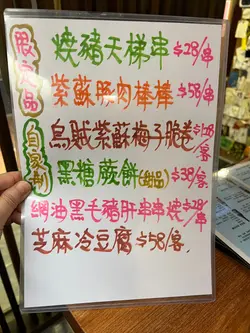 限定品
燒豬天梯串 $28/串
紫蘇豚肉棒棒 $58/串
自家制
烏賊紫蘇梅子脆卷 $128/客
黑糖蕨餅(甜品) $38/客
網油黑毛豬肝串串燒 $28/串
芝麻冷豆腐 $58/客